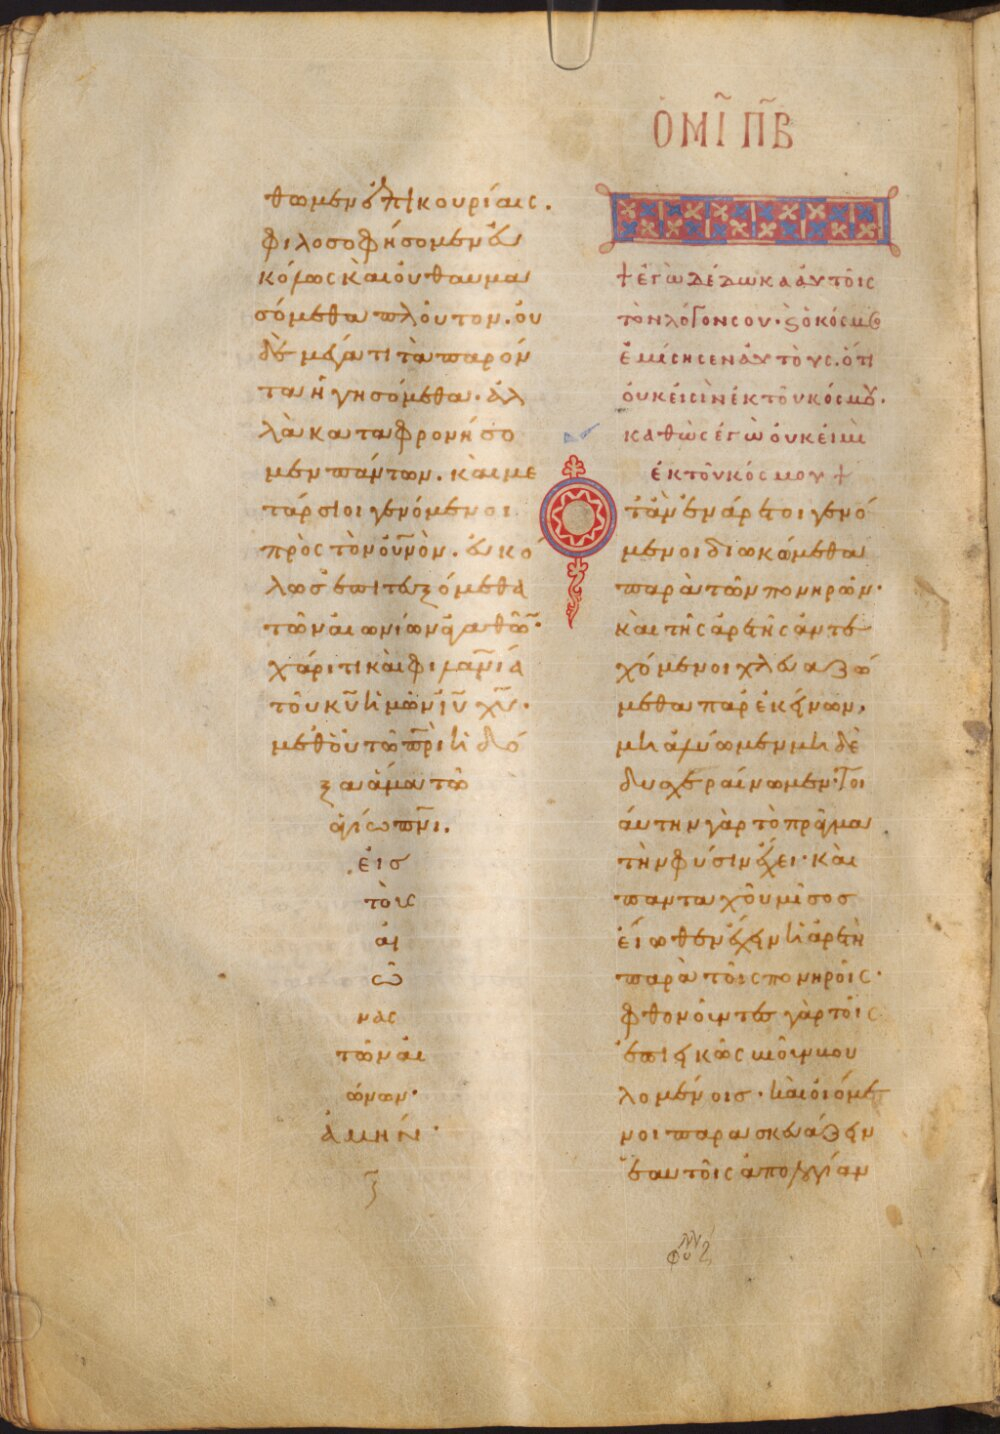 ὉΜΙ̃ Π̃Β
θωμεν ἐπικουρίαις.
φιλοσοφήσομεν εὐ
κόλως καὶ οὐ θαυμα
σόμεθα πλοῦτον. οὐ
δὲ μέγα τι τὰ παρόν
τα ἡγησόμεθα. ἀλ
λὰ καταφρονήσο
μεν πάντων. καὶ με
τάρσιοι γενόμενοι
πρὸς τὸν οὐ̅νὸν. εὐκό
λως ἐπιτευξόμεθα
τῶν αἰωνίων ἀγαθῶ̅·
χάριτι καὶ φιλαν̅ία
τοῦ κ̅υ ἡμῶν ι̅υ χ̅υ.
μεθ' οὗ τῶ π̅ρι ἡ δό
ξα ἅμα τῶ
ἁγίω π̅νι.
εἰσ
τοὺς
αἰ
ῶ
νας
τῶν αἰ
ώνων·
ἀμήν·
† ἐγὼ δέδωκα αὐτοῖς
τὸν λόγον σου. ϗ ὁ κόσμο
ἐμίσησεν αὐτούς. ὅτι
οὐκ εἰσὶν ἐκ τοῦ κόσμου.
καθὼς ἐγὼ οὐκ εἰμὶ
ἐκ τοῦ κόσμου †
Ὅταν ἐνάρετοι γενό
μενοι διωκώμεθα
παρὰ τῶν πονηρῶν·
καὶ τῆς ἀρετῆς ἀντε
χόμενοι χλευαζώ
μεθα παρ' ἐκείνων,
μὴ ἀλύωμεν μὴ δὲ
δυσχεραίνωμεν· τοι
αύτην γὰρ τὸ πρᾶγμα
τὴν φύσιν ἔχει· καὶ
πανταχοῦ μῖσοσ
εἴωθεν ἔχειν ἡ ἀρετὴ
παρὰ τοῖς πονηροῖς·
φθονοῦντεσ γὰρ τοῖς
ἐπιεικῶς ζῆν βου
λομένοισ· καὶ οἰόμε
νοι παρασκευάζειν
ἑαυτοῖς ἀπολογίαν